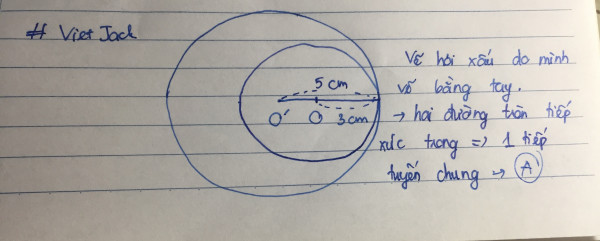 # VietJack
Vẽ hơi xấu do mình
vẽ bằng tay.
→ hai đường tròn tiếp
xúc trong => 1 tiếp
tuyến chung → A
5 cm
O' O 3 cm